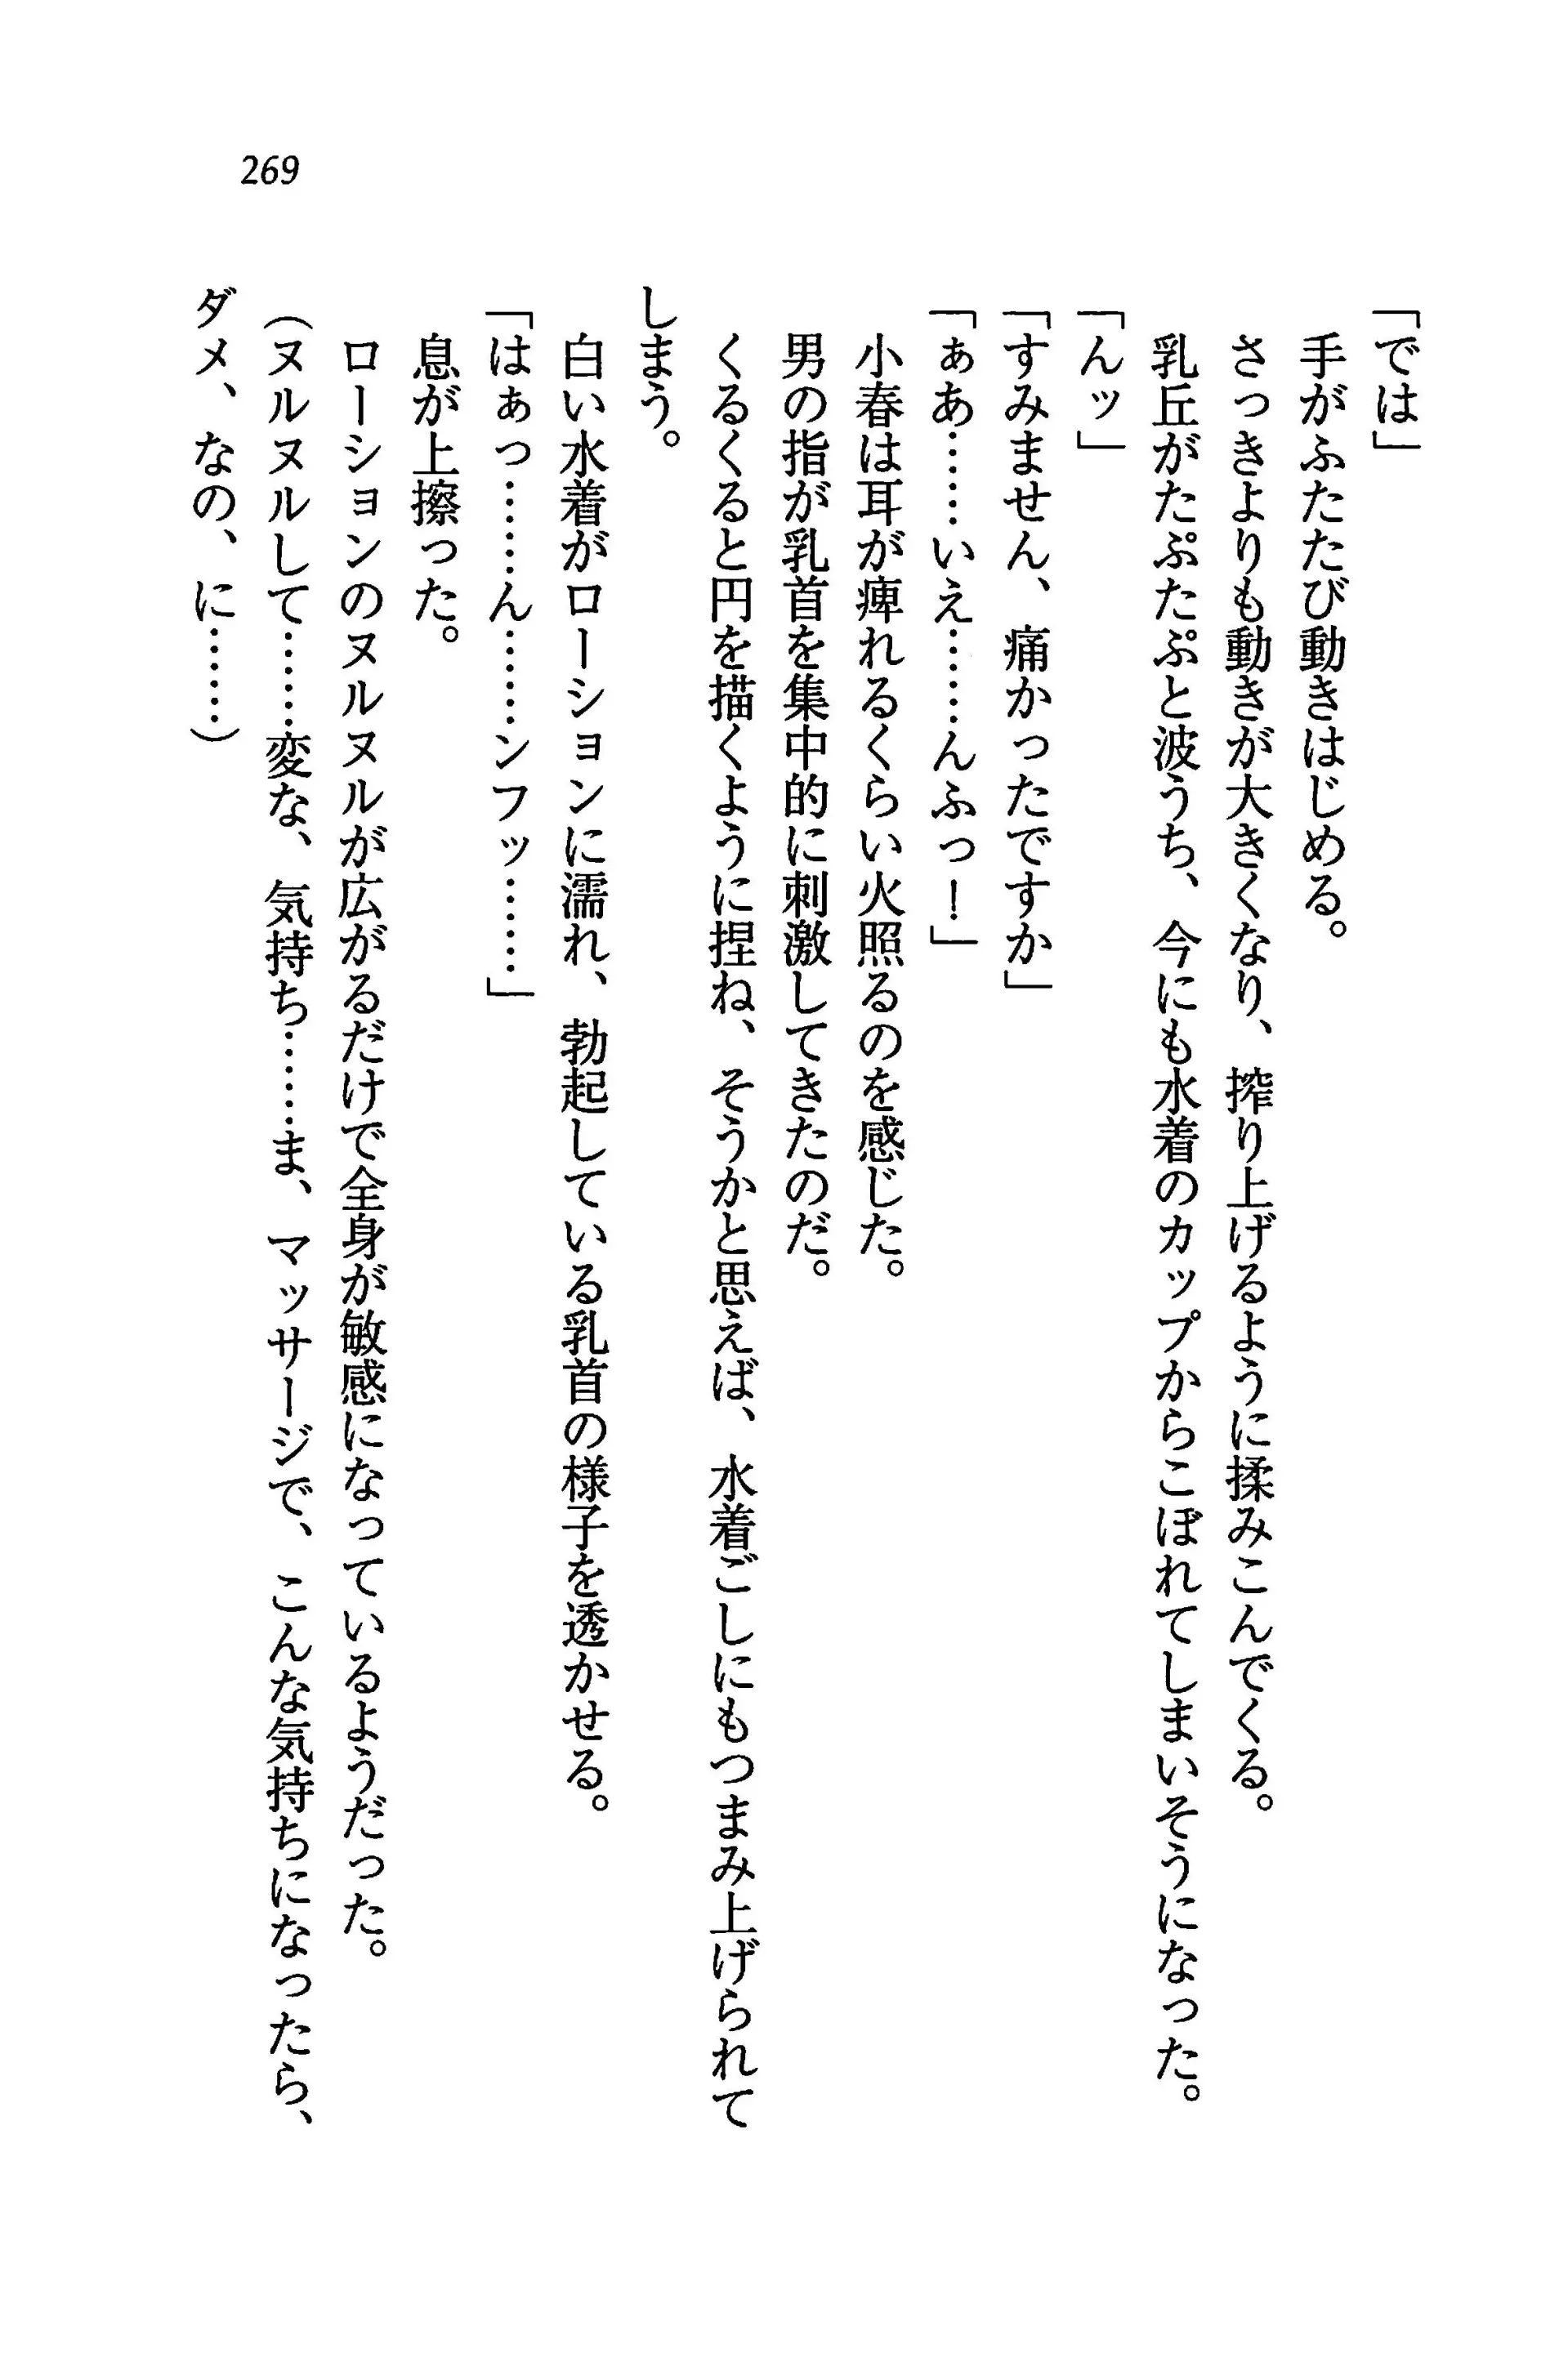 269
「では」
手がふたたび動きはじめる。
さっきよりも動きが大きくなり、搾り上げるように揉みこんでくる。
乳丘がたぷたぷと波うち、今にも水着のカップからこぼれてしまいそうになった。
「んッ」
「すみません、痛かったですか」
「ぁあ……いえ……んふっ！」
小春は耳が痺れるくらい火照るのを感じた。
男の指が乳首を集中的に刺激してきたのだ。
くるくると円を描くように捏ね、そうかと思えば、水着ごしにもつまみ上げられて
しまう。
白い水着がローションに濡れ、勃起している乳首の様子を透かせる。
「はぁっ……ん……ンフッ……」
息が上擦った。
ローションのヌルヌルが広がるだけで全身が敏感になっているようだった。
（ヌルヌルして……変な、気持ち……ま、マッサージで、こんな気持ちになったら、
ダメ、なの、に……）